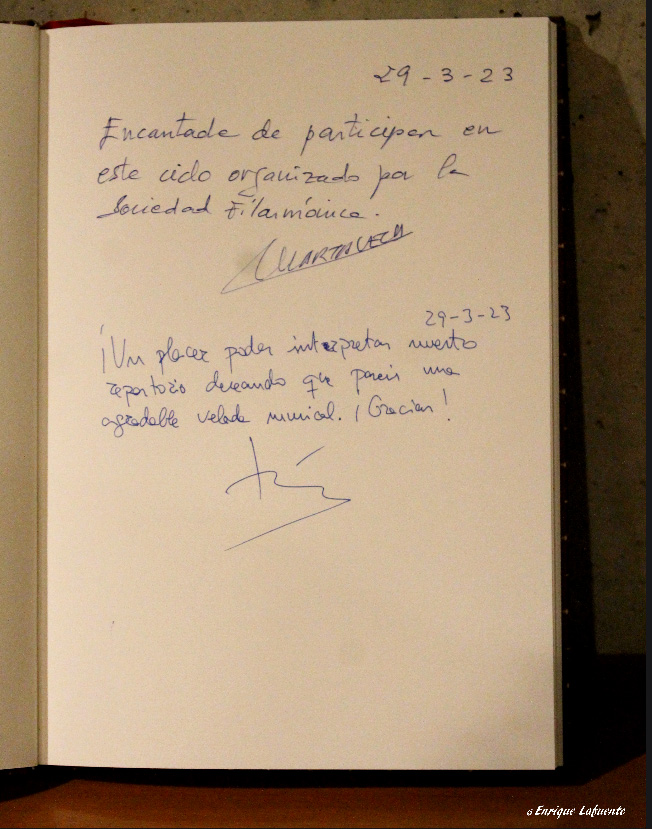 29-3-23
Encantada de participar en
este ciclo organizado por la
Sociedad Filarmónica.
MARTA VECH
29-3-23
¡Un placer poder interpretar nuestro
repertorio deseando que paseis una
agradable velada musical. ¡Gracias!
© Enrique Lafuente